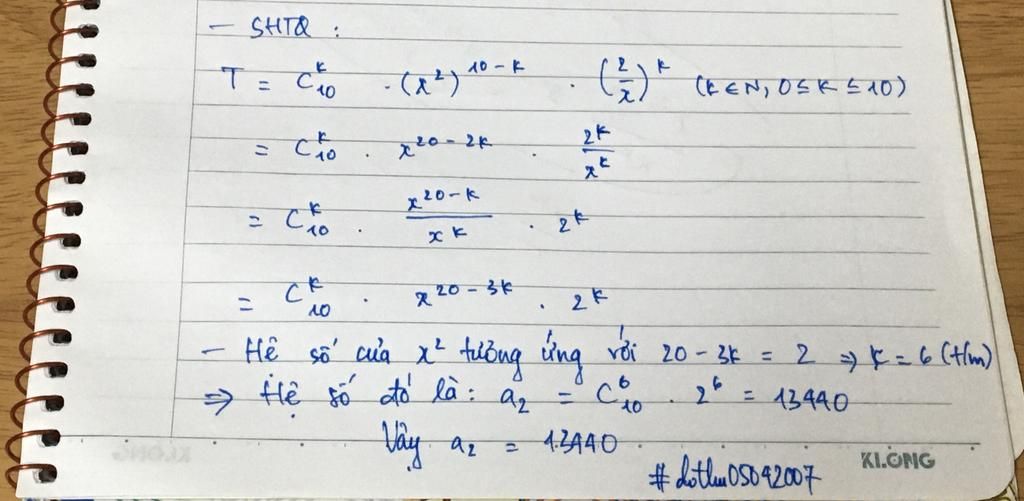 — SHTQ :
T = C₁₀ᵏ . (x²)¹⁰⁻ᵏ . (2/x)ᵏ (k ∈ N, 0 ≤ k ≤ 10)
= C₁₀ᵏ . x²⁰⁻²ᵏ . 2ᵏ/xᵏ
= C₁₀ᵏ . x²⁰⁻ᵏ/xᵏ . 2ᵏ
= C₁₀ᵏ . x²⁰⁻³ᵏ . 2ᵏ
— Hệ số của x² tương ứng với 20 - 3k = 2 => k = 6 (t/m)
=> Hệ số đó là: a₂ = C₁₀⁶ . 2⁶ = 13440
Vậy a₂ = 13440
KLONG